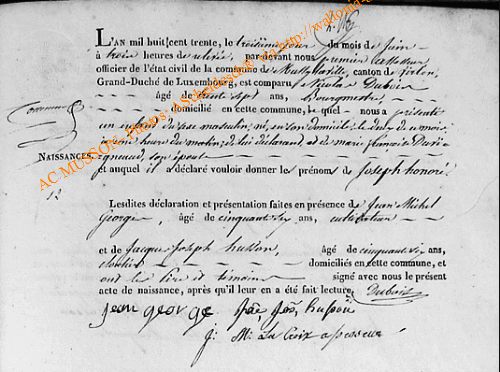 N.° 15
L'AN mil huit cent trente, le troisième jour du mois de juin
à trois heures de relevée, par devant nous premier assesseur
officier de l'état civil de la commune de Mussy la ville, canton de Virton,
Grand-Duché de Luxembourg, est comparu Nicolas Dubois
âgé de trente ans, bourgmestre
domicilié en cette commune, lequel nous a présenté
un enfant du sexe masculin, né, en son domicile le deux de ce mois,
une heure du matin, de lui déclarant, et de marie
son épouse
NAISSANCES.
et auquel il a déclaré vouloir donner le prénom de Joseph honoré
Lesdites déclaration et présentation faites en présence de Jean Michel
George, âgé de cinquante six ans, cultivateur
et de Jacque Joseph husson, âgé de cinquante six ans,
cloutier domiciliés en cette commune, et
ont les père et témoins signé avec nous le présent
acte de naissance, après qu'il leur en a été fait lecture. Dubois
jean george jos husson
j: M: La Croix assesseur
AC MUSSON, Photos
http://wallonia